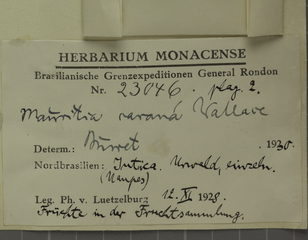 HERBARIUM MONACENSE
Brasilianische Grenzexpeditionen General Rondon
Nr. 23046. plag 2.
Mauritia caraná Wallace
Determ.: Burret 1930.
Nordbrasilien: Jutica. Urwald, einzeln.
(Uaupes)
Leg. Ph. v. Luetzelburg 12. XI 1928.
Früchte in der Fruchtsammlung.